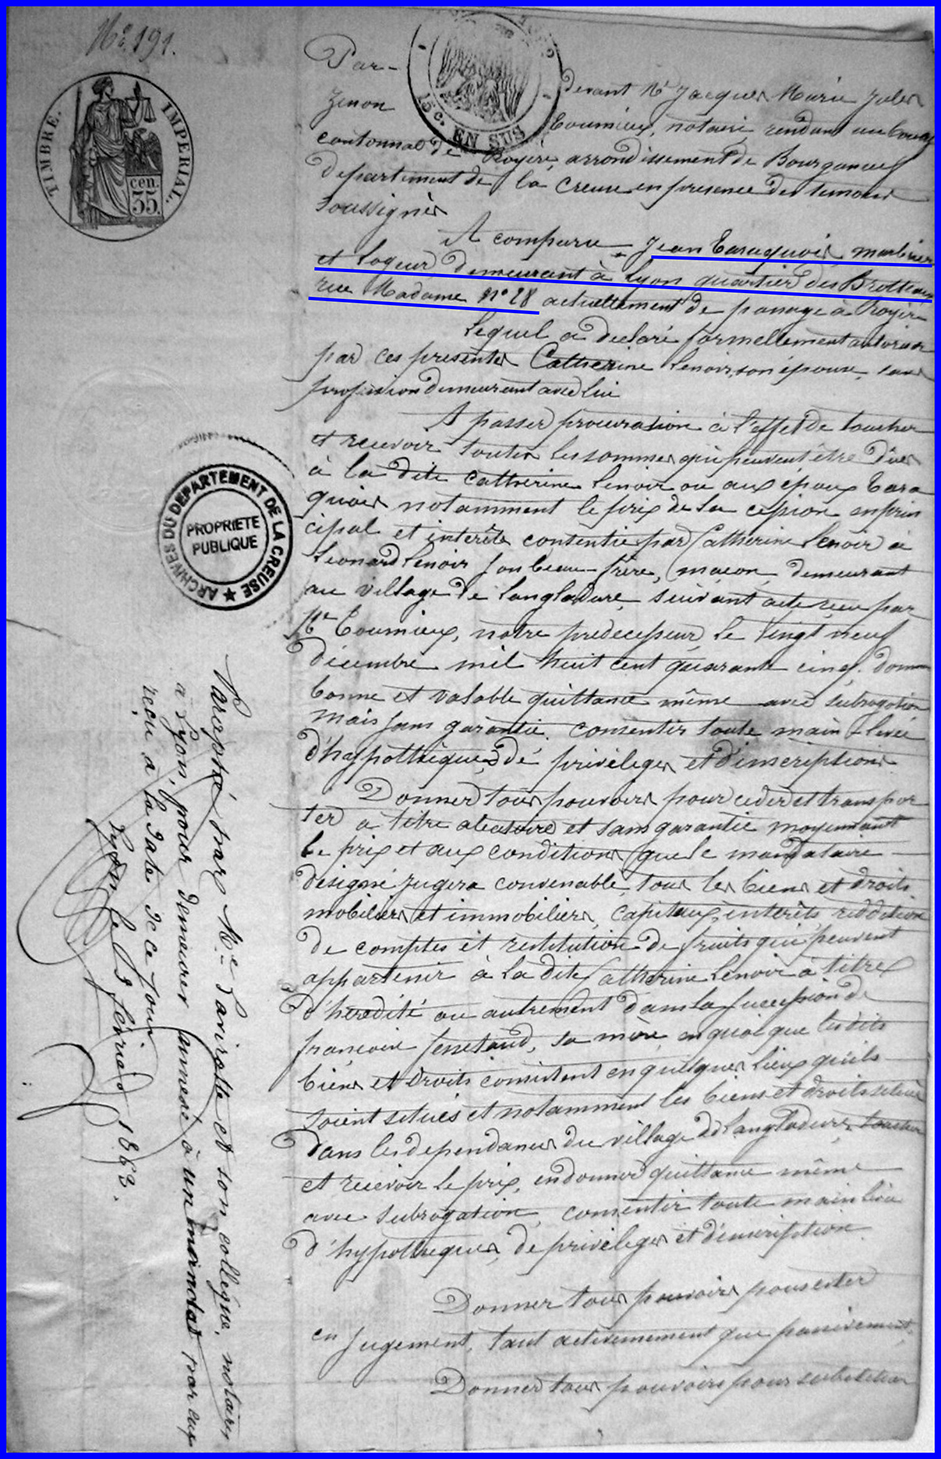 No 191.
TIMBRE IMPERIAL.
35 cen.
15 c. EN SUS
Par-
devant Me Jacques Marie Jules
Zenon Coumieux, notaire rendant au bourg
cantonnal de Royère arrondissement de Bourganeuf
departement de la Creuse en presence des temoins
Soussignés
A comparu Jean Taraquois,
et Logeur demeurant à Lyon quartier des Brotteaux
rue Madame no 28 actuellement de passage à Royère
Lequel a declaré formellement autoriser
par ces presentes Catherine Lenoir, son épouse, sans
profession demeurant avec lui
A passer procuration à l'effet de toucher
et recevoir toutes les sommes qui peuvent être dues
à la dite Catherine Lenoir ou aux époux Tara
quois notamment le prix de la cession en prin
cipal et intérêts consentie par Catherine Lenoir à
Léonard Lenoir son beau-frère, maçon, demeurant
au village de Langladure, suivant acte reçu par
Me Coumieux, notre predecesseur le vingt neuf
décembre mil huit cent quarante cinq. donner
bonne et valable quittance même avec subrogation
mais sans garantie, consentir toute main levée
d'hypothèques de privilèges et d'inscriptions.
Donner tous pouvoirs pour ceder et transpor
ter à titre aleatoire et sans garantie moyennant
le prix et aux conditions que le mandataire
désigné jugera convenable tous les biens et droits
mobiliers et immobiliers, capitaux, interêts reddition
de comptes et restitution de fruits qui peuvent
appartenir à la dite Catherine Lenoir à titre
d'heredité ou autrement dans la succession de
françoise, sa mère en quoi que les dits
biens et droits consistent en quelques lieux qu'ils
soient situés et notamment les biens et droits situés
dans les dependances du village de Langladure, toucher
et recevoir le prix, en donner quittance même
avec subrogation, consentir toute main levée
d'hypothèques, de privilèges et d'inscription.
Donner tous pouvoirs pour ester
en jugement, tant activement que passivement.
Donner tous pouvoirs pour substituer
ARCHIVES DU DEPARTEMENT DE LA CREUSE
PROPRIETE
PUBLIQUE
Paraphé par Me Lavirotte et son collègue, notaires
à Lyon, pour demeurer annexé à un par eux
reçu à la date de ce jour
Lyon, le février 1863.